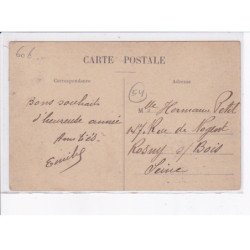 606
CARTE POSTALE
Correspondance
Adresse
Bons souhaits
d'heureuse année
Emile
M lle Hermance Petit
Rue de Nogent
Rosny s/ Bois
Seine